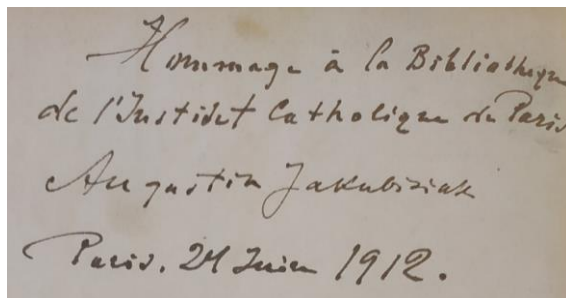 Hommage à la Bibliothèque
de l'Institut Catholique de Paris
Augustin Jakubisiak
Paris. 24 Juin 1912.